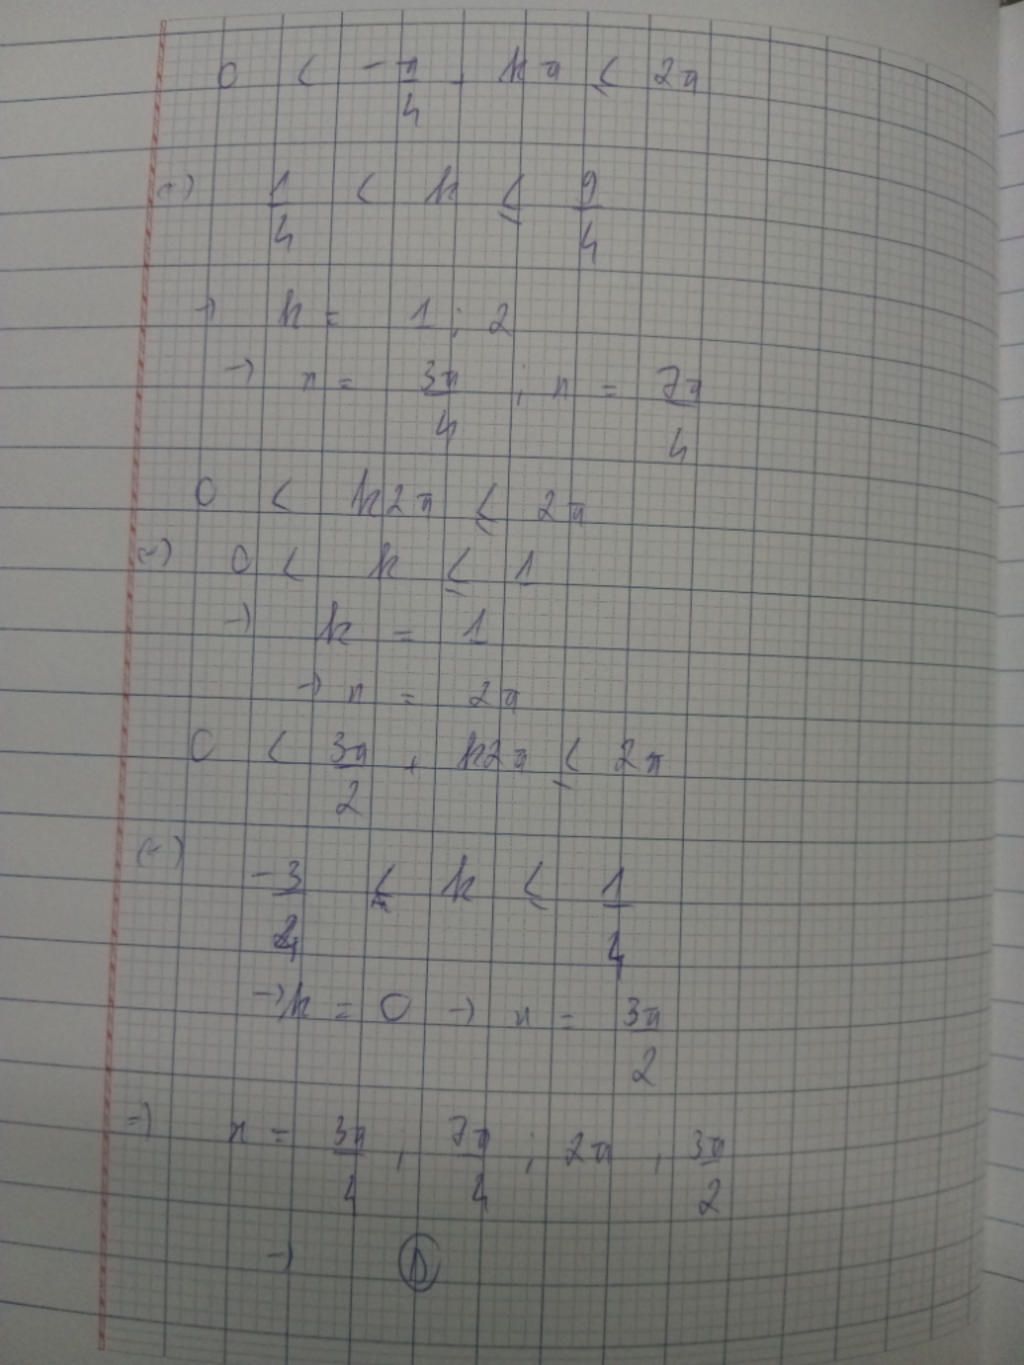 0 < -π/4 + kπ ≤ 2π
(=) 1/4 < k ≤ 9/4
-) k = 1 ; 2
-) x = 3π/4 ; x = 7π/4
0 < k2π ≤ 2π
(=) 0 < k ≤ 1
-) k = 1
-) x = 2π
0 < 3π/2 + k2π ≤ 2π
(=) -3/4 < k ≤ 1/4
-) k = 0 -) x = 3π/2
=) x = 3π/4 ; 7π/4 ; 2π ; 3π/2
-)